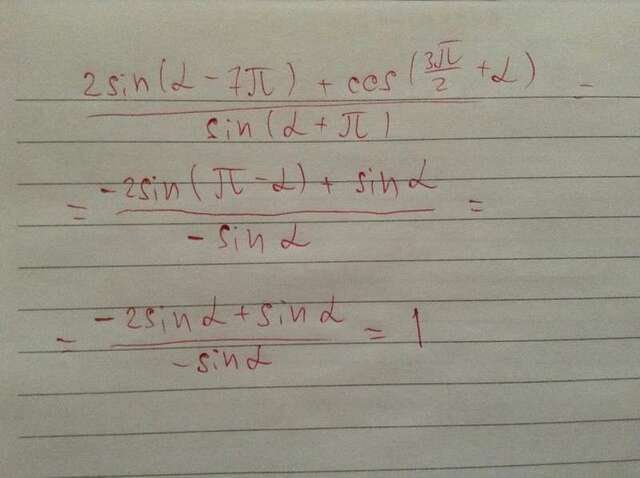 2sin(α - 7π) + cos(3π/2 + α) =
sin(α + π)
= -2sin(π - α) + sinα =
-sinα
= -2sinα + sinα = 1
-sinα